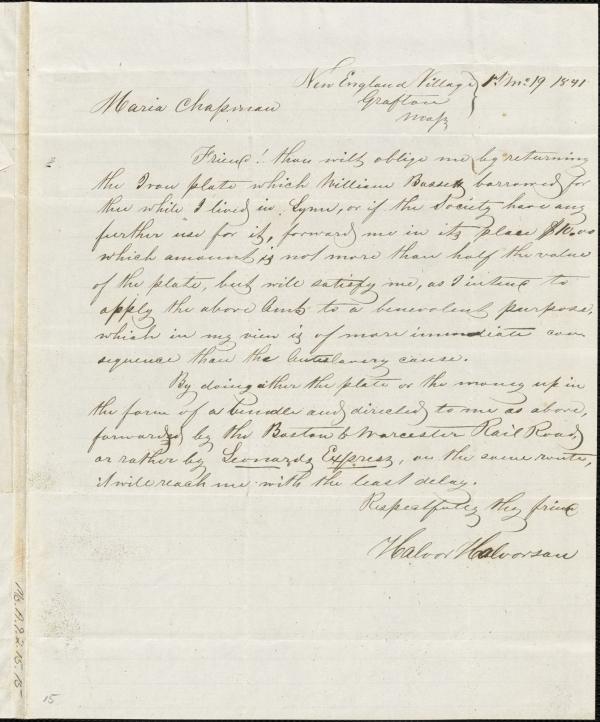 New England Village } 1st Mo 19 1841
Grafton
Mass
Maria Chapman
Friend! thou wilt oblige me by returning
the Iron plate which William Bassett borrowed for
thee while I lived in Lynn, or if the Society have any
further use for it, forward me in its place $10.00
which amount is not more than half the value
of the plate, but will satisfy me, as I intend to
apply the above Amt to a benevolent purpose,
which in my view is of more immediate con
sequence than the Antislavery cause.
By doing either the plate or the money up in
the form of a bundle and directed to me as above,
forwarded by the Boston & Worcester Rail Road,
or rather by Leonards Express, on the same route,
it will reach me with the least delay.
Respectfully thy friend
Halvor Halvorsan
Ms.A.9.2.15.15
15